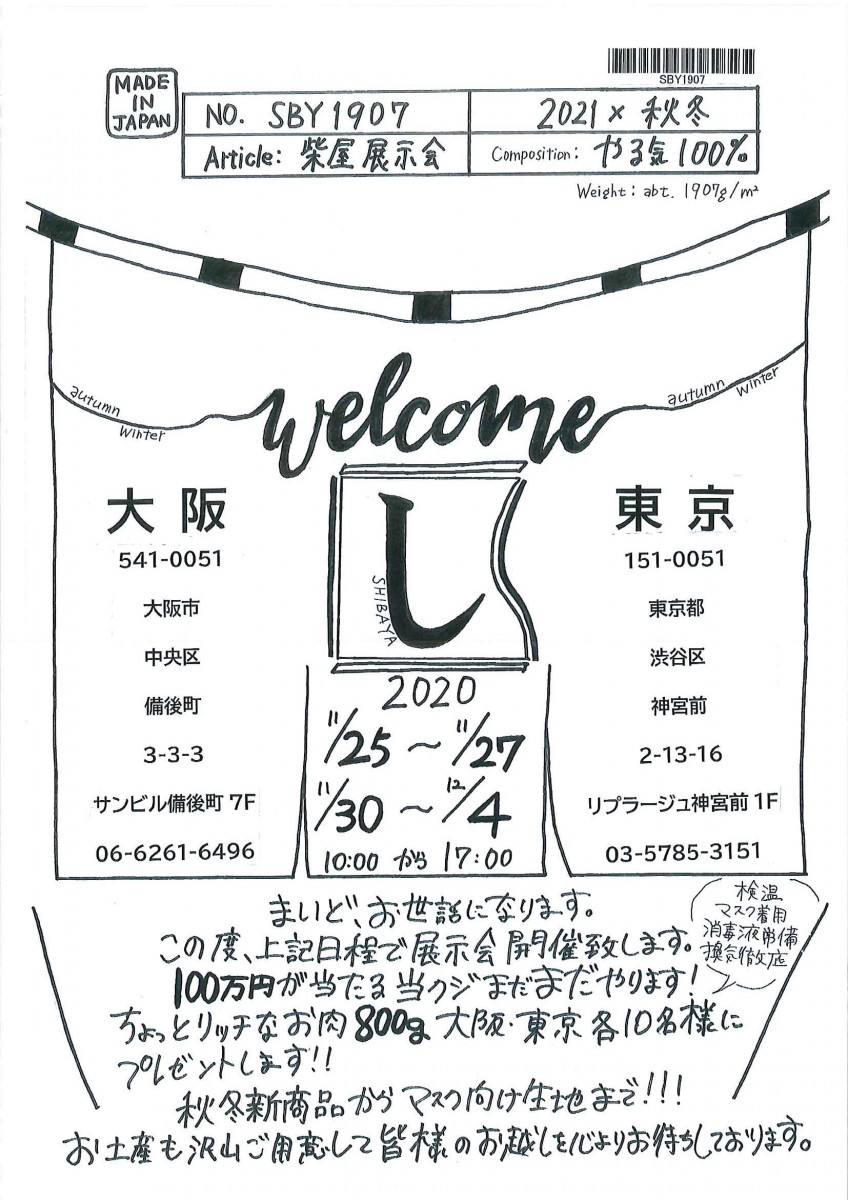 SBY1907
MADE
IN
JAPAN
NO. SBY1907
2021 × 秋冬
Article: 柴屋展示会
Composition: やる気100%
Weight: abt. 1907g/m²
autumn
winter
welcome
autumn
winter
大阪
541-0051
大阪市
中央区
備後町
3-3-3
サンビル備後町 7F
06-6261-6496
し
SHIBAYA
2020
11/25 ~ 11/27
11/30 ~ 12/4
10:00 から 17:00
東京
151-0051
東京都
渋谷区
神宮前
2-13-16
リプラージュ神宮前 1F
03-5785-3151
検温
マスク着用
消毒液常備
換気徹底
まいど、お世話になります。
この度、上記日程で展示会開催致します。
100万円が当たる当クジまだまだやります!
ちょっとリッチなお肉800g 大阪・東京各10名様に
プレゼントします!!
秋冬新商品からマスク向け生地まで!!!
お土産も沢山ご用意して皆様のお越しを心よりお待ちしております。